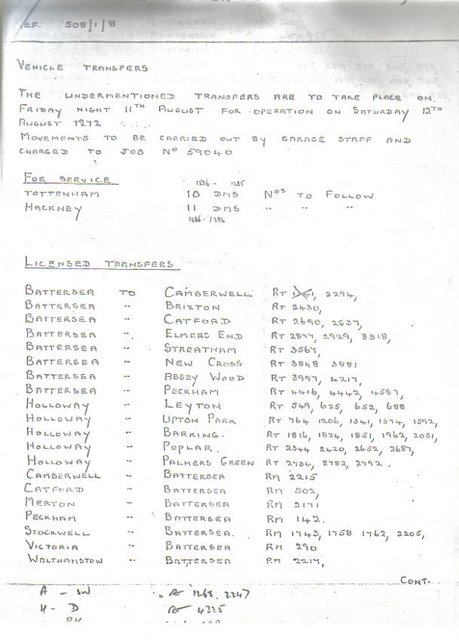 EF. 508/1/8
VEHICLE TRANSFERS
THE UNDERMENTIONED TRANSFERS ARE TO TAKE PLACE ON
FRIDAY NIGHT 11TH AUGUST FOR OPERATION ON SATURDAY 12TH
AUGUST 1972
MOVEMENTS TO BE CARRIED OUT BY GARAGE STAFF AND
CHARGED TO JOB No 59040
FOR SERVICE
TOTTENHAM 10 DMS Nos TO FOLLOW
HACKNEY 11 DMS " " "
LICENSED TRANSFERS
BATTERSEA TO CAMBERWELL RT 2294,
BATTERSEA " BRIXTON RT 2430,
BATTERSEA " CATFORD RT 2690, 2837,
BATTERSEA " ELMERS END RT 2877, 2929, 3318,
BATTERSEA " STREATHAM RT 3567,
BATTERSEA " NEW CROSS RT 3848 3881
BATTERSEA " ABBEY WOOD RT 3997, 4217,
BATTERSEA " PECKHAM RT 4416, 4442, 4587,
HOLLOWAY " LEYTON RT 549, 625, 652, 688
HOLLOWAY " UPTON PARK RT 764 1206, 1341, 1574, 1592,
HOLLOWAY " BARKING. RT 1816, 1824, 1851, 1962, 2051,
HOLLOWAY " POPLAR. RT 2344 2420, 2652, 2687,
HOLLOWAY " PALMERS GREEN RT 2734, 2782, 2792.
CAMBERWELL " BATTERSEA RM 2215
CATFORD " BATTERSEA RM 502,
MERTON " BATTERSEA RM 2171
PECKHAM " BATTERSEA RM 142.
STOCKWELL " BATTERSEA. RM 1743, 1758 1762, 2205,
VICTORIA " BATTERSEA RM 290
WALTHAMSTOW " BATTERSEA RM 2217,
CONT.
A - SW 1268, 2247
H - D 4325